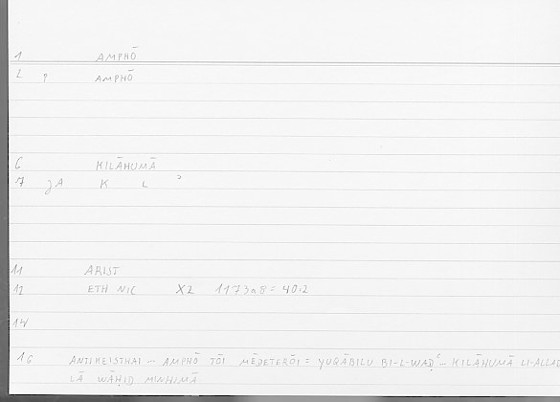 1 AMPHŌ
2 P AMPHŌ
6 KILĀHUMĀ
7 JA K L ʾ
11 ARIST
12 ETH NIC X2 1173a8 = 40.2
14
16 ANTIKEISTHAI – AMPHŌ TŌI MĒDETERŌI = YUQĀBILU BI-L-WAḌʿ – KILĀHUMĀ LI-ALLAḎ
LĀ WĀḤID MINHIMĀ